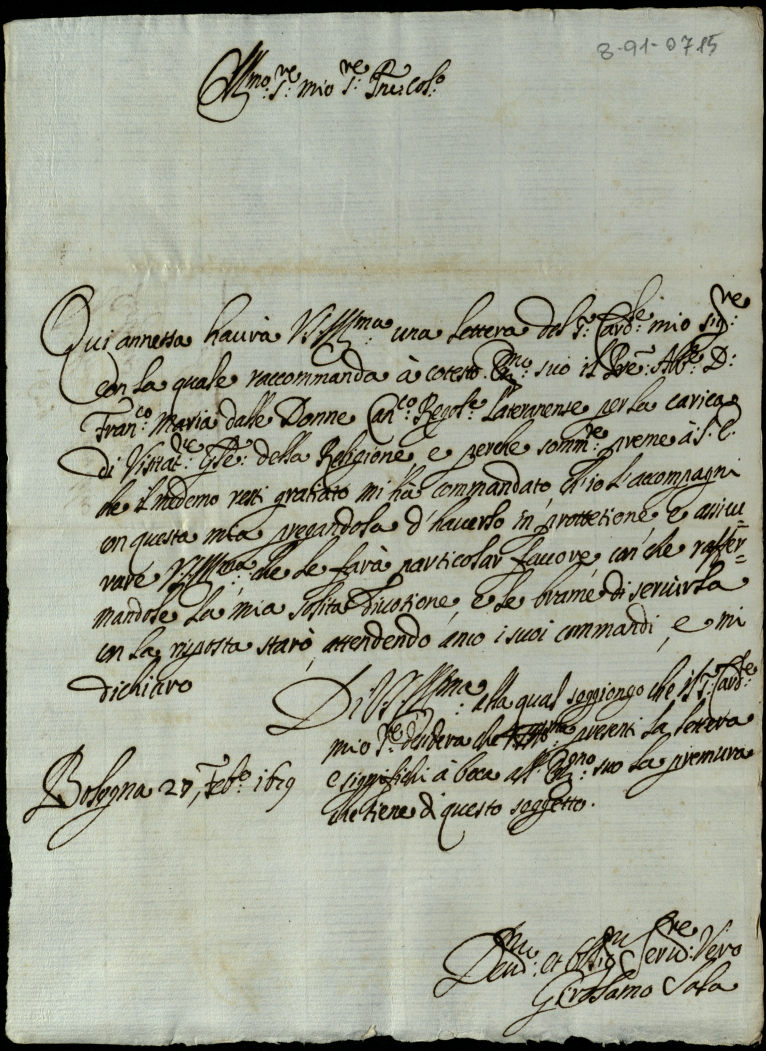 8-91-0715
Ill.mo S.re mio S.re Pne: Col.mo
Qui annessa havrà V.S. Ill.ma una lettera del S.r Card.le mio Sig.re
con la quale raccommanda à cotesto suo il Pre: Ab.e D:
Fran.co Maria dalle Donne Can.co Regol.e Lateranense per la carica
di Visitat.re G.le della Religione, e perche somm.te preme à S. E.
che il medemo resti gratiato mi hà commandato, ch'io l'accompagni
con questa mia pregandola d'haverlo in prottetione, e assicu=
rare V.S. Ill.ma che le farà particolar favore, con che raffer=
mandole la mia solita divotione, e le brame di servirla
con la risposta starò attendendo anco i suoi commandi, e mi
dichiaro
Di V.S. Ill.ma alla qual soggiongo che il S.r Card.le
mio S.re desidera che presenti la lettera
e significhi à boca all' suo la premura
che tiene di questo soggetto.
Bologna 27 Feb.o 1629
Dev.mo et Obblig.mo Serv.re Vero
Girolamo Sala